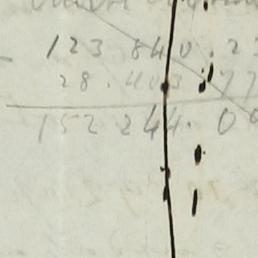 123 840.23
28.403.77
152 244.00